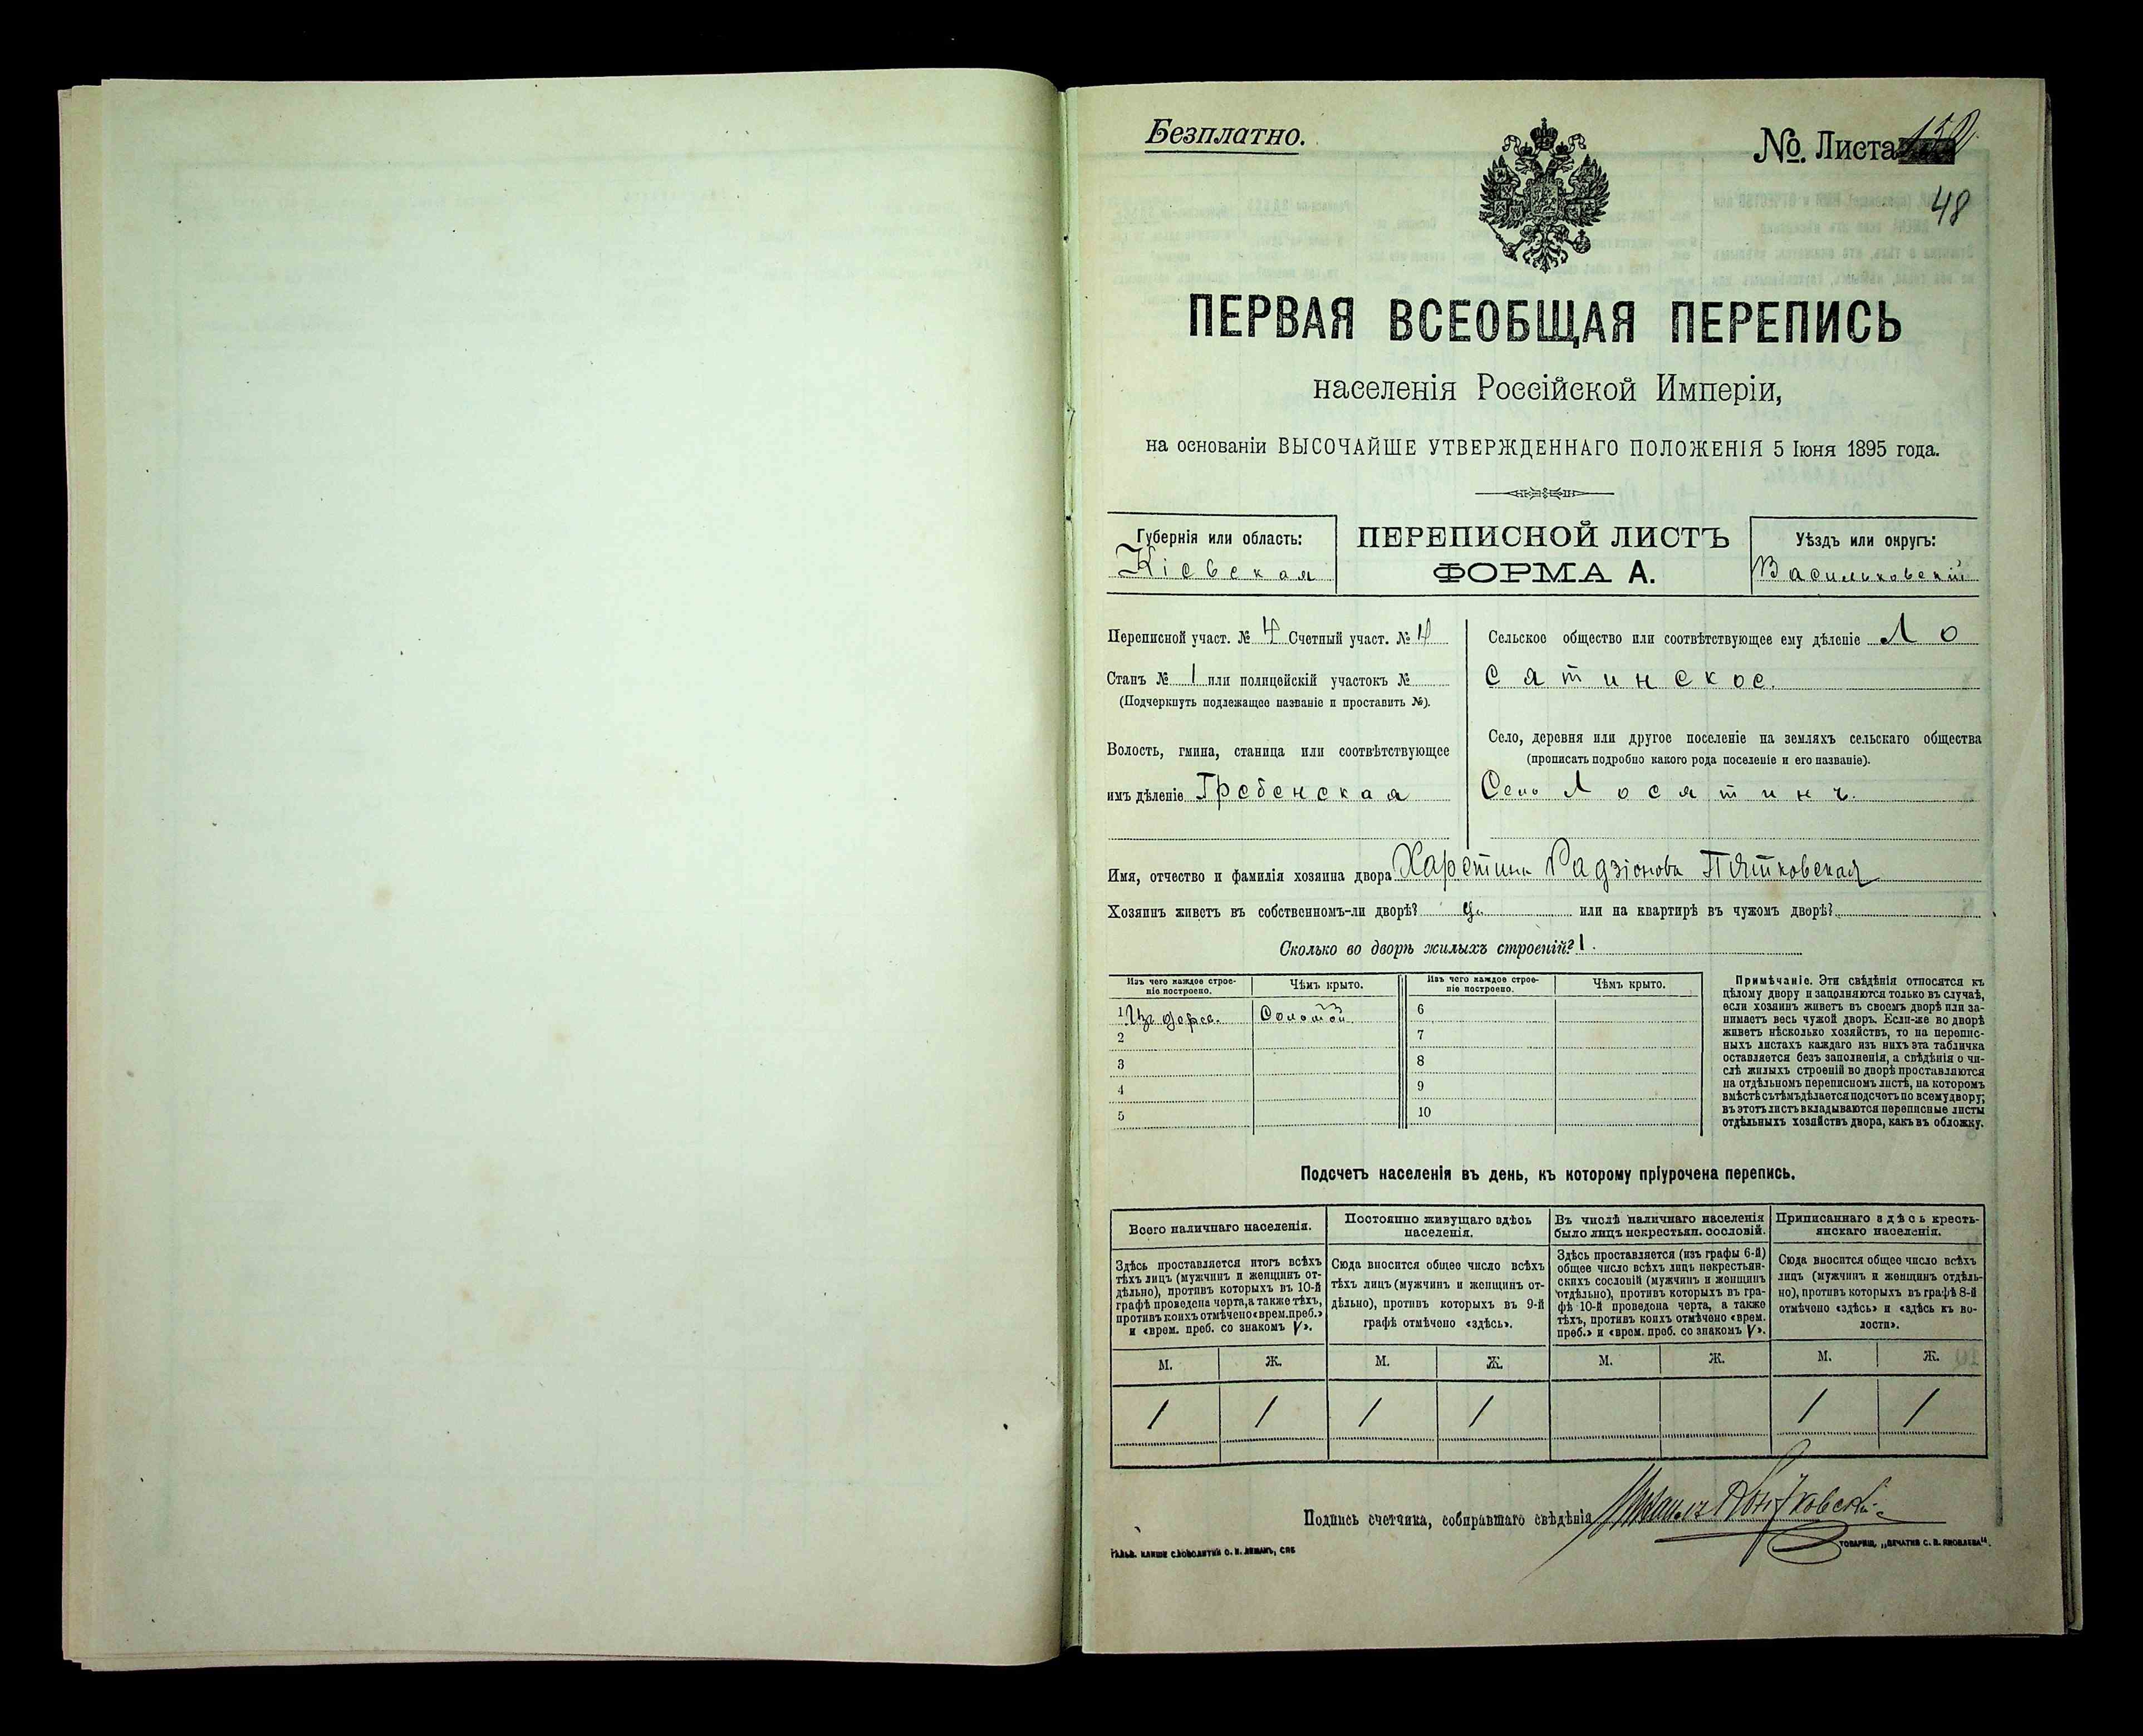 Безплатно.
No. Листа
48
ПЕРВАЯ ВСЕОБЩАЯ ПЕРЕПИСЬ
населенія Россійской Имперіи,
на основаніи ВЫСОЧАЙШЕ УТВЕРЖДЕННАГО ПОЛОЖЕНІЯ 5 Іюня 1895 года.
Губернія или область:
Кіевская
ПЕРЕПИСНОЙ ЛИСТЪ
ФОРМА А.
Уѣздъ или округъ:
Васильковскій
Переписной участ. № 4 Счетный участ. № 4
Станъ № 1 или полицейскій участокъ №
(Подчеркнуть подлежащее названіе и проставить №).
Волость, гмина, станица или соотвѣтствующее
имъ дѣленіе Гребенская
Сельское общество или соотвѣтствующее ему дѣленіе Ло
сятинское.
Село, деревня или другое поселеніе на земляхъ сельскаго общества
(прописать подробно какого рода поселеніе и его названіе).
Село Лосятинъ.
Имя, отчество и фамилія хозяина двора Харетина Радзіонова Пятковская
Хозяинъ живетъ въ собственномъ-ли дворѣ? или на квартирѣ въ чужомъ дворѣ?
Сколько во дворѣ жилыхъ строеній? 1.
Изъ чего каждое строе-
ніе построено.
Чѣмъ крыто.
Изъ чего каждое строе-
ніе построено.
Чѣмъ крыто.
1 Изъ дерев. Соломой 6
2 7
3 8
4 9
5 10
Примѣчаніе. Эти свѣдѣнія относятся къ
цѣлому двору и заполняются только въ случаѣ,
если хозяинъ живетъ въ своемъ дворѣ или за-
нимаетъ весь чужой дворъ. Если-же во дворѣ
живетъ нѣсколько хозяйствъ, то на перепис-
ныхъ листахъ каждаго изъ нихъ эта табличка
оставляется безъ заполненія, а свѣдѣнія о чи-
слѣ жилыхъ строеній во дворѣ проставляются
на отдѣльномъ переписномъ листѣ, на которомъ
вмѣстѣ съ тѣмъ дѣлается подсчетъ по всему двору;
въ этотъ листъ вкладываются переписные листы
отдѣльныхъ хозяйствъ двора, какъ въ обложку.
Подсчетъ населенія въ день, къ которому пріурочена перепись.
Всего наличнаго населенія.
Здѣсь проставляется итогъ всѣхъ
тѣхъ лицъ (мужчинъ и женщинъ от-
дѣльно), противъ которыхъ въ 10-й
графѣ проведена черта, а также тѣхъ,
противъ коихъ отмѣчено «врем. преб.»
и «врем. преб. со знакомъ V».
Постоянно живущаго здѣсь
населенія.
Сюда вносится общее число всѣхъ
тѣхъ лицъ (мужчинъ и женщинъ от-
дѣльно), противъ которыхъ въ 9-й
графѣ отмѣчено «здѣсь».
Въ числѣ наличнаго населенія
было лицъ некрестьян. сословій.
Здѣсь проставляется (изъ графы 6-й)
общее число всѣхъ лицъ некрестьян-
скихъ сословій (мужчинъ и женщинъ
отдѣльно), противъ которыхъ въ гра-
фѣ 10-й проведена черта, а также
тѣхъ, противъ коихъ отмѣчено «врем.
преб.» и «врем. преб. со знакомъ V».
Приписаннаго здѣсь кресть-
янскаго населенія.
Сюда вносится общее число всѣхъ
лицъ (мужчинъ и женщинъ отдѣль-
но), противъ которыхъ въ графѣ 8-й
отмѣчено «здѣсь» и «здѣсь въ во-
лости».
М. Ж. М. Ж. М. Ж. М. Ж.
1 1 1 1 1 1
Подпись счетчика, собиравшаго свѣдѣнія
ГАЛЬВ. КЛИШЕ СЛОВОЛИТНИ О. И. ЛЕМАНЪ, СПБ
ТОВАРИЩ. „ПЕЧАТНЯ С. П. ЯКОВЛЕВА“.